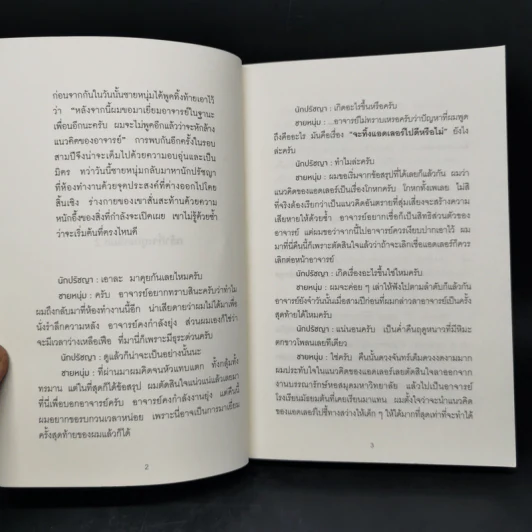 ก่อนจากกันในวันนั้นชายหนุ่มได้พูดทิ้งท้ายเอาไว้
ว่า "หลังจากนี้ผมขอมาเยี่ยมอาจารย์ในฐานะ
เพื่อนอีกนะครับ ผมจะไม่พูดอีกแล้วว่าจะหักล้าง
แนวคิดของอาจารย์" การพบกันอีกครั้งในรอบ
สามปีจึงน่าจะเต็มไปด้วยความอบอุ่นและเป็น
มิตร ทว่าวันนี้ชายหนุ่มกลับมาหานักปรัชญา
ที่ห้องทำงานด้วยจุดประสงค์ที่ต่างออกไปโดย
สิ้นเชิง ร่างกายของเขาสั่นสะท้านด้วยความ
หนักอึ้งของสิ่งที่กำลังจะเปิดเผย เขาไม่รู้ด้วยซ้ำ
ว่าจะเริ่มต้นที่ตรงไหนดี
นักปรัชญา : เอาละ มาคุยกันเลยไหมครับ
ชายหนุ่ม : ครับ อาจารย์อยากทราบสินะครับว่าทำไม
ผมถึงกลับมาที่ห้องทำงานนี้อีก น่าเสียดายว่าผมไม่ได้มาเพื่อ
นั่งรำลึกความหลัง อาจารย์คงกำลังยุ่ง ส่วนผมเองก็ใช่ว่า
จะมีเวลาว่างเหลือเฟือ ที่มานี่ก็เพราะมีธุระด่วนครับ
นักปรัชญา : ดูแล้วก็น่าจะเป็นอย่างนั้นนะ
ชายหนุ่ม : ที่ผ่านมาผมคิดจนหัวแทบแตก ทั้งกลุ้มทั้ง
ทรมาน แต่ในที่สุดก็ได้ข้อสรุป ผมตัดสินใจแน่วแน่แล้วเลยมา
ที่นี่เพื่อบอกอาจารย์ครับ อาจารย์คงกำลังงานยุ่ง แต่คืนนี้
ผมอยากขอรบกวนเวลาหน่อย เพราะนี่อาจเป็นการมาเยี่ยม
ครั้งสุดท้ายของผมแล้วก็ได้
2
นักปรัชญา : เกิดอะไรขึ้นหรือครับ
ชายหนุ่ม : ...อาจารย์ไม่ทราบเหรอครับว่าปัญหาที่ผมพูด
ถึงคืออะไร มันคือเรื่อง "จะทิ้งแอดเลอร์ไปดีหรือไม่" ยังไง
ล่ะครับ
นักปรัชญา : ทำไมล่ะครับ
ชายหนุ่ม : ผมขอเริ่มจากข้อสรุปที่ได้เลยก็แล้วกัน ผม
ว่าแนวคิดของแอดเลอร์เป็นเรื่องโกหกครับ โกหกทั้งเพเลย ไม่สิ
ที่จริงต้องเรียกว่าเป็นแนวคิดอันตรายที่สุ่มเสี่ยงจะสร้างความ
เสียหายให้ด้วยซ้ำ อาจารย์อยากเชื่อก็เป็นสิทธิส่วนตัวของ
อาจารย์ แต่ผมขอว่าจากนี้ไปอาจารย์ควรเงียบปากเอาไว้ ผม
มาที่นี่คืนนี้ก็เพราะตัดสินใจแล้วว่าถ้าจะเลิกเชื่อแอดเลอร์ก็ควร
เลิกต่อหน้าอาจารย์
นักปรัชญา : เกิดเรื่องอะไรขึ้นใช่ไหมครับ
ชายหนุ่ม : ผมจะค่อย ๆ เล่าให้ฟังไปตามลำดับก็แล้วกัน
อาจารย์ยังจำวันนั้นเมื่อสามปีก่อนที่ผมกล่าวลาอาจารย์เป็นครั้ง
สุดท้ายได้ไหมครับ
นักปรัชญา : แน่นอนครับ เป็นค่ำคืนฤดูหนาวที่มีหิมะ
ตกขาวโพลนเลยทีเดียว
ชายหนุ่ม : ใช่ครับ คืนนั้นดวงจันทร์เต็มดวงงดงามมาก
ผมประทับใจในแนวคิดของแอดเลอร์เลยตัดสินใจลาออกจาก
งานบรรณารักษ์หอสมุดมหาวิทยาลัย แล้วไปเป็นอาจารย์
โรงเรียนมัธยมต้นที่เคยเรียนมาแทน ผมตั้งใจว่าจะนำแนวคิด
ของแอดเลอร์ไปชี้ทางสว่างให้เด็ก ๆ ให้ได้มากที่สุดเท่าที่จะทำได้
3